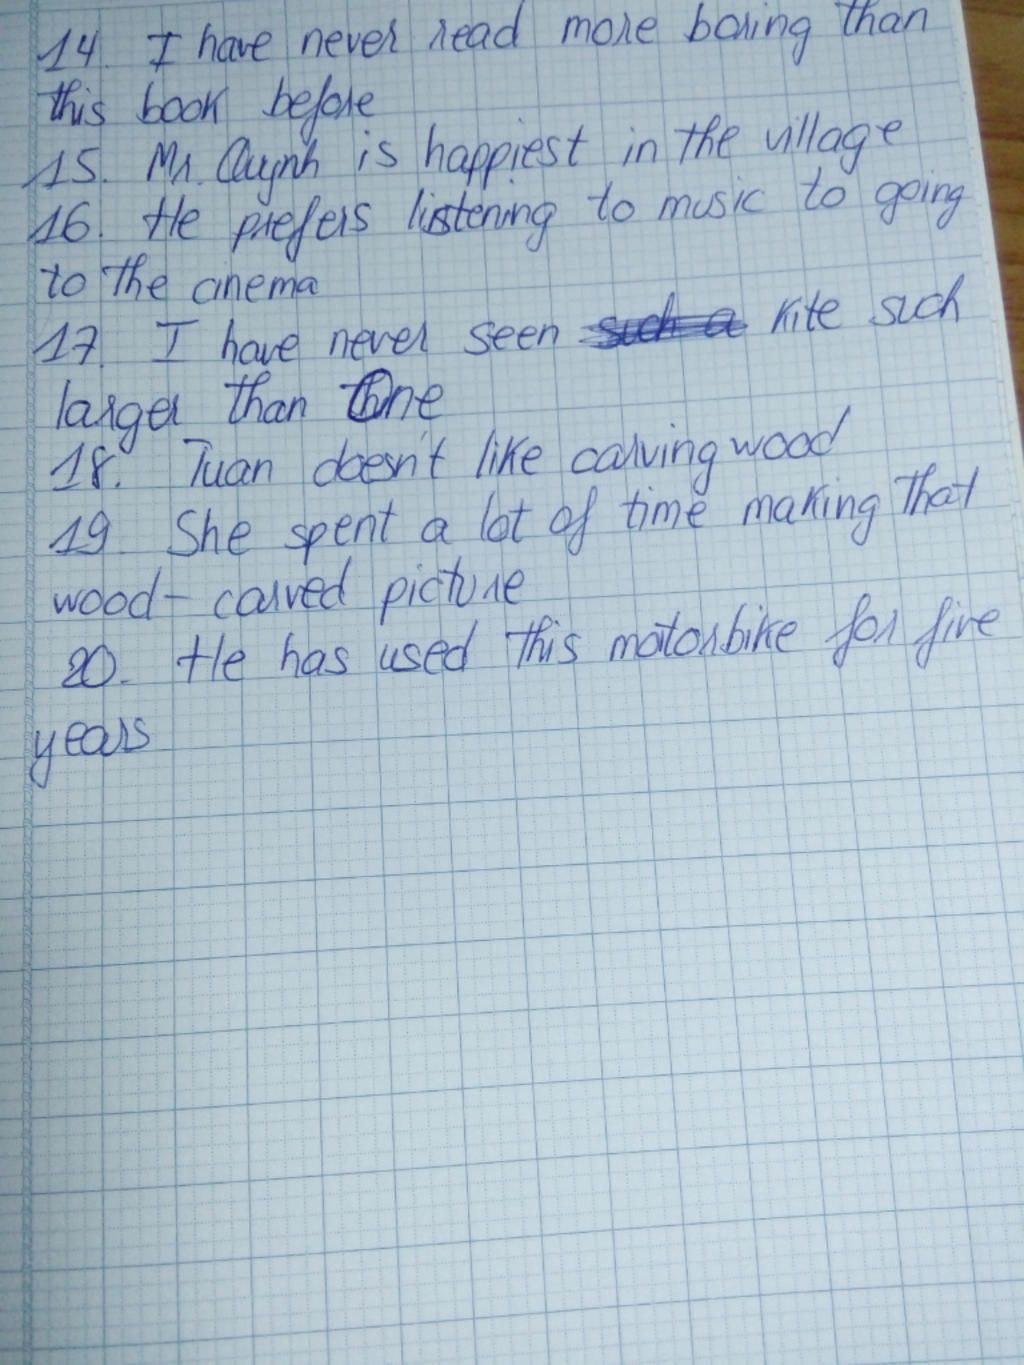 14. I have never read more boring than
this book before
15. Mr. Quynh is happiest in the village
16. He prefers listening to music to going
to the cinema
17. I have never seen such a kite such
larger than one
18. Tuan doesn't like carving wood
19. She spent a lot of time making that
wood-carved picture
20. He has used this motorbike for five
years